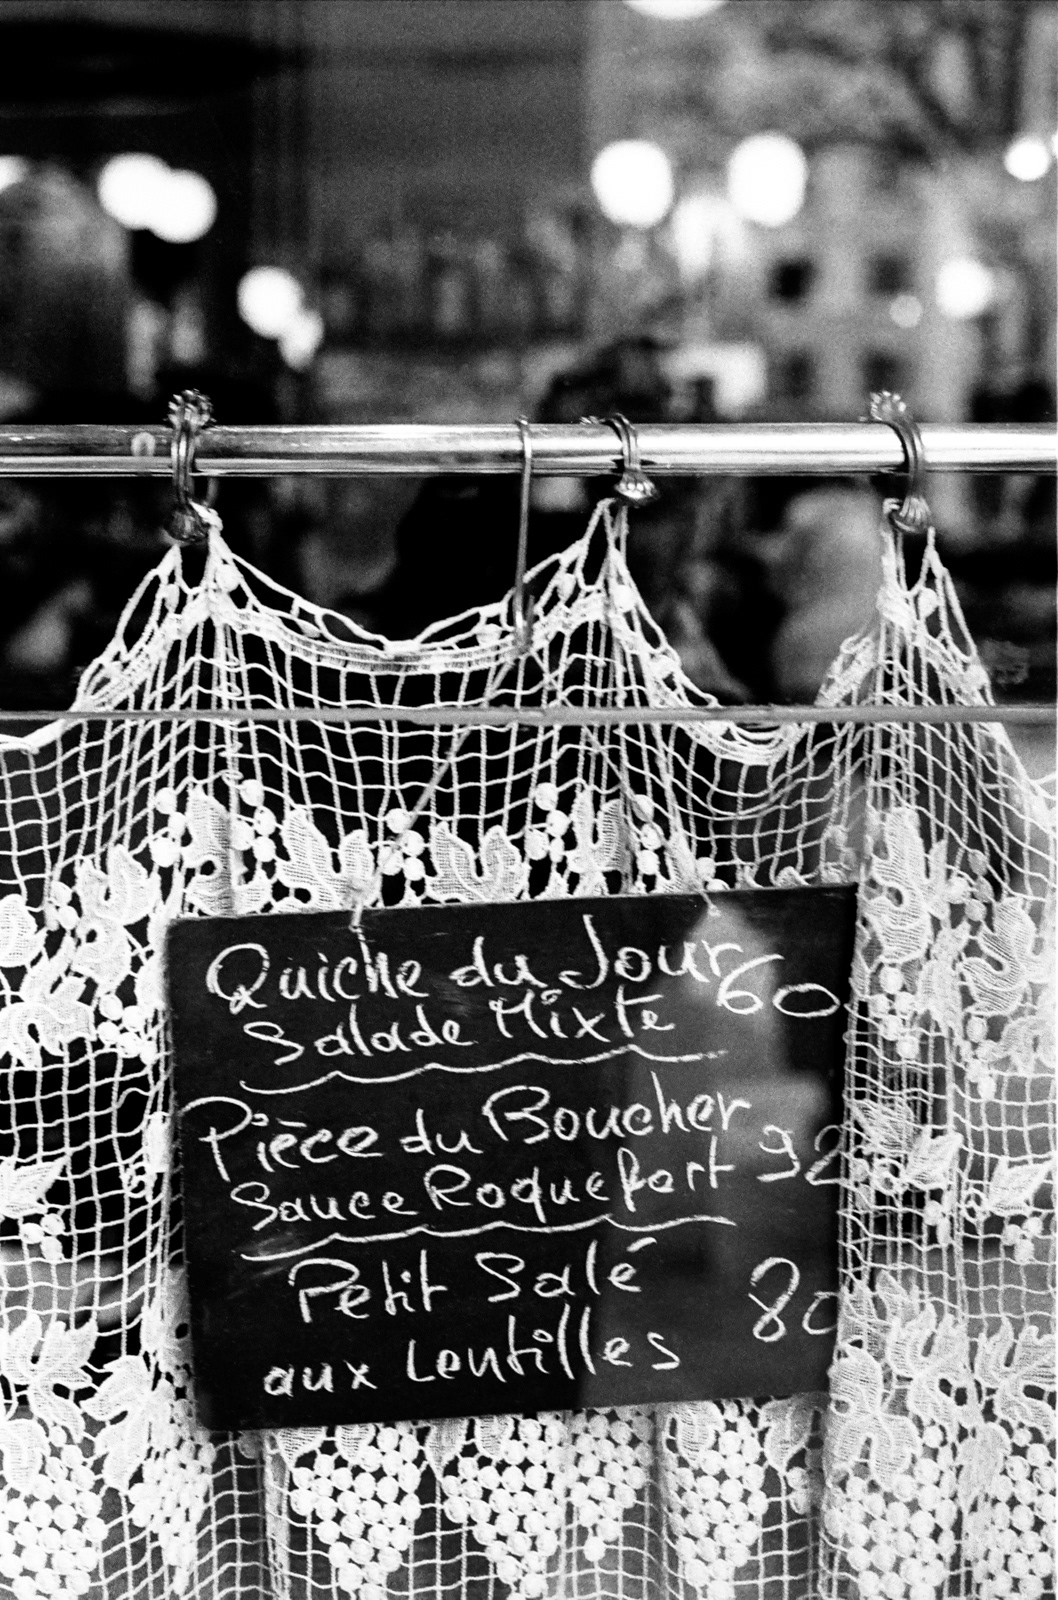 Quiche du Jour 60
Salade Mixte
Pièce du Boucher
Sauce Roquefort 92
Petit Salé 80
aux Lentilles